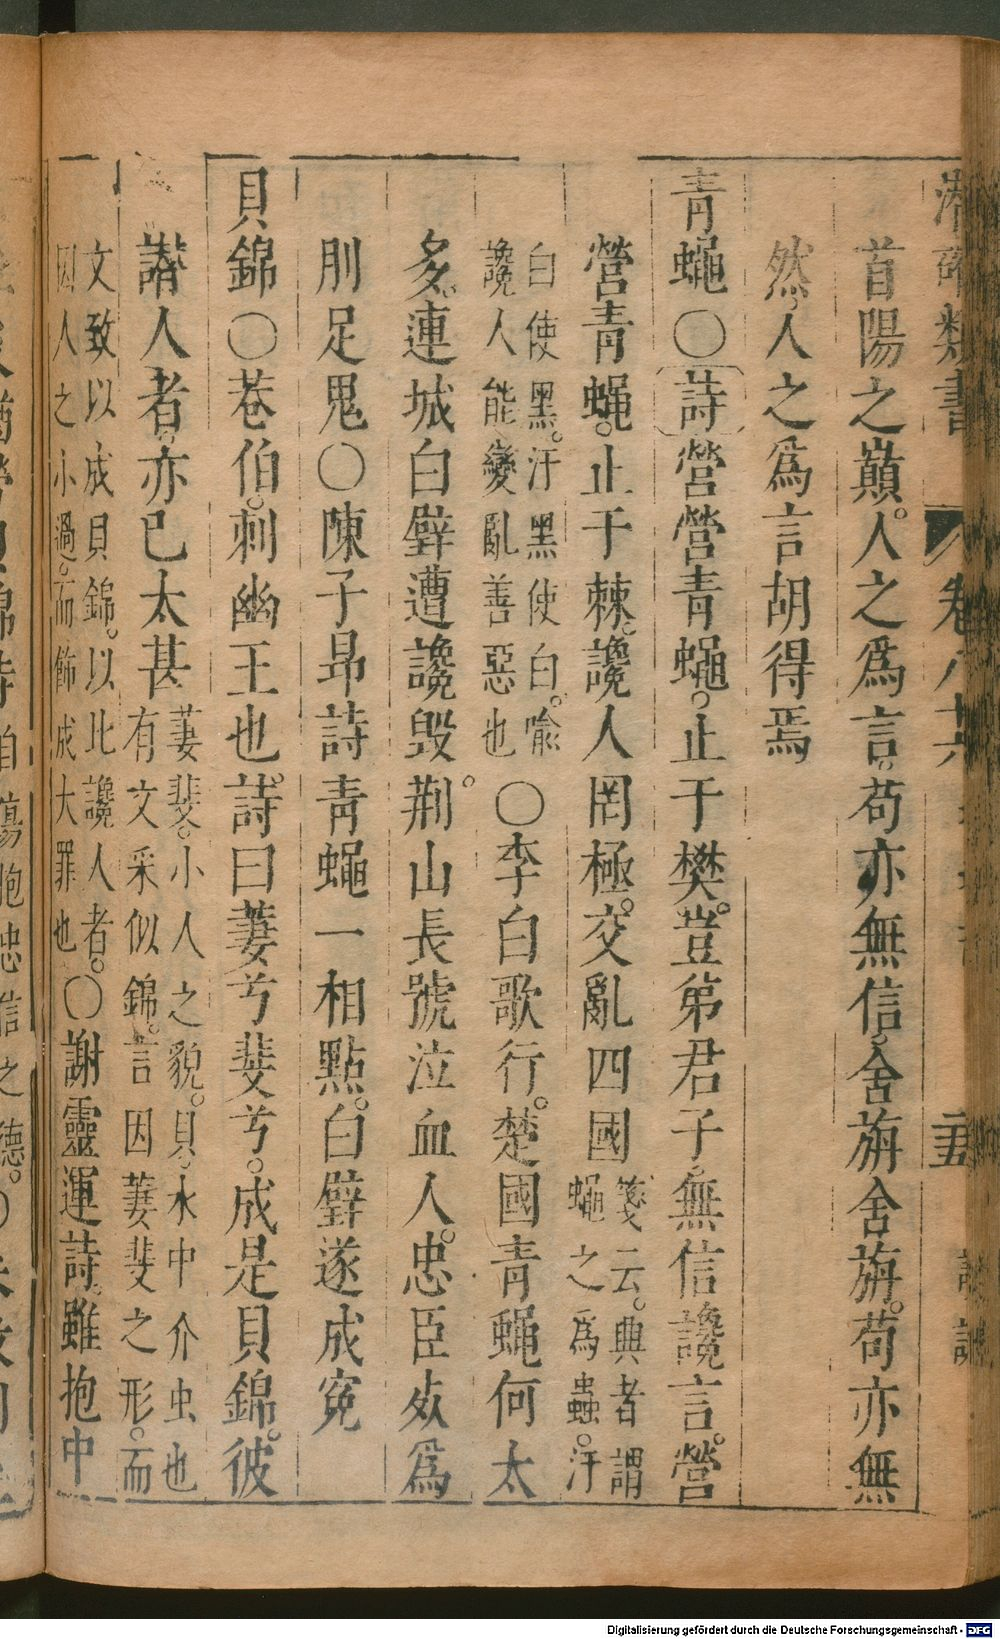 類書 卷八十六
首陽之巔。人之爲言。苟亦無信。舍旃舍旃。苟亦無
然。人之爲言胡得焉
青蠅○詩營營青蠅。止于樊。豈弟君子。無信讒言。營
營青蠅。止于棘。讒人罔極。交亂四國
箋云。興者謂
蠅之爲蟲。汙
白使黑。汙黑使白。喻
讒人能變亂善惡也
○李白歌行。楚國青蠅何太
多。連城白璧遭讒毁。荆山長號泣血人。忠臣灰爲
刖足鬼○陳子昻詩青蠅一相點。白璧遂成寃
貝錦○巷伯。刺幽王也。詩曰萋兮斐兮。成是貝錦。彼
譖人者。亦已太甚
萋斐。小人之貌。貝。水中介虫也
有文采似錦。言因萋斐之形。而
文致以成貝錦。以比讒人者。
因人之小過。而飾成大罪也
○謝靈運詩。雖抱中
Digitalisierung gefördert durch die Deutsche Forschungsgemeinschaft - DFG